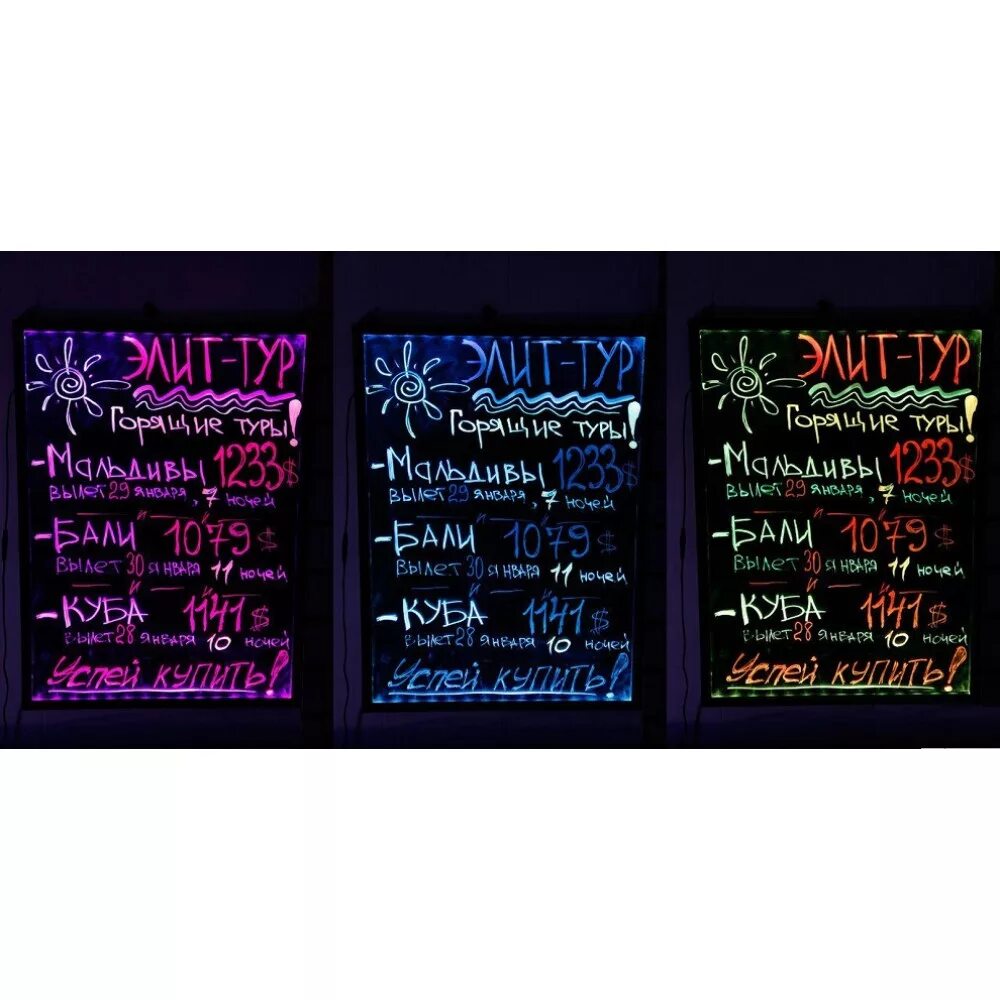 ЭЛИТ-ТУР
Горящие туры!
-Мальдивы 1233$
вылет 29 января, 7 ночей
-БАЛИ 1079$
вылет 30 января 11 ночей
-КУБА 1141$
вылет 28 января 10 ночей
Успей купить!
ЭЛИТ-ТУР
Горящие туры!
-Мальдивы 1233$
вылет 29 января, 7 ночей
-БАЛИ 1079$
вылет 30 января 11 ночей
-КУБА 1141$
вылет 28 января 10 ночей
Успей купить!
ЭЛИТ-ТУР
Горящие туры!
-Мальдивы 1233$
вылет 29 января, 7 ночей
-БАЛИ 1079$
вылет 30 января 11 ночей
-КУБА 1141$
вылет 28 января 10 ночей
Успей купить!